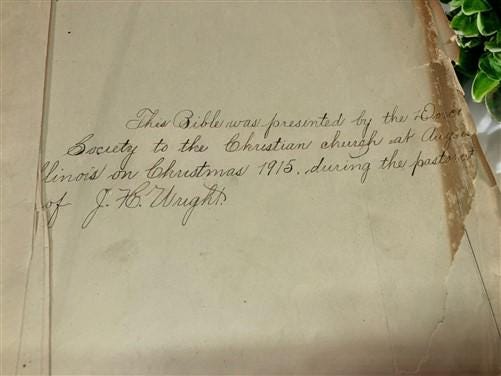 This Bible was presented by the Dorc
Society to the Christian church at Augus
llinois on Christmas 1915, during the pastorat
of J. H. Wright.